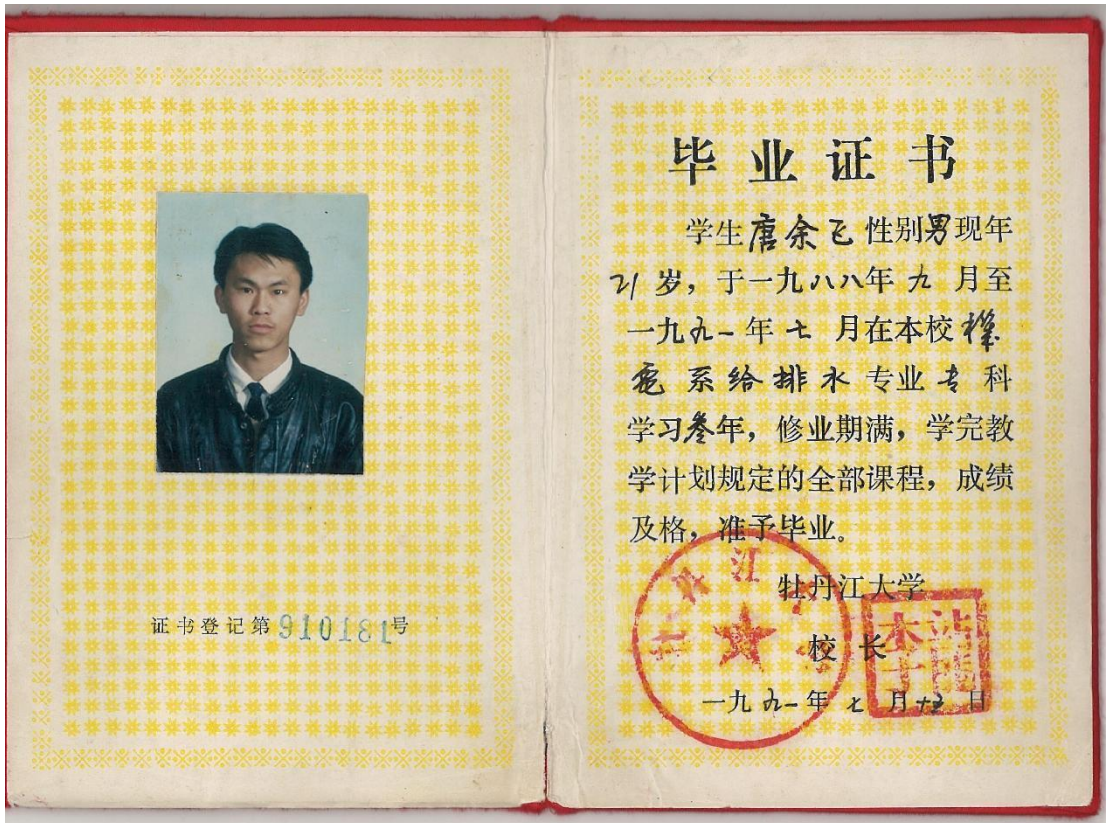 证书登记第910181号
毕业证书
学生唐余飞性别男现年
21岁，于一九八八年九月至
一九九一年七月在本校机
电系给排水专业专科
学习叁年，修业期满，学完教
学计划规定的全部课程，成绩
及格，准予毕业。
牡丹江大学
校长
一九九一年七月十五日